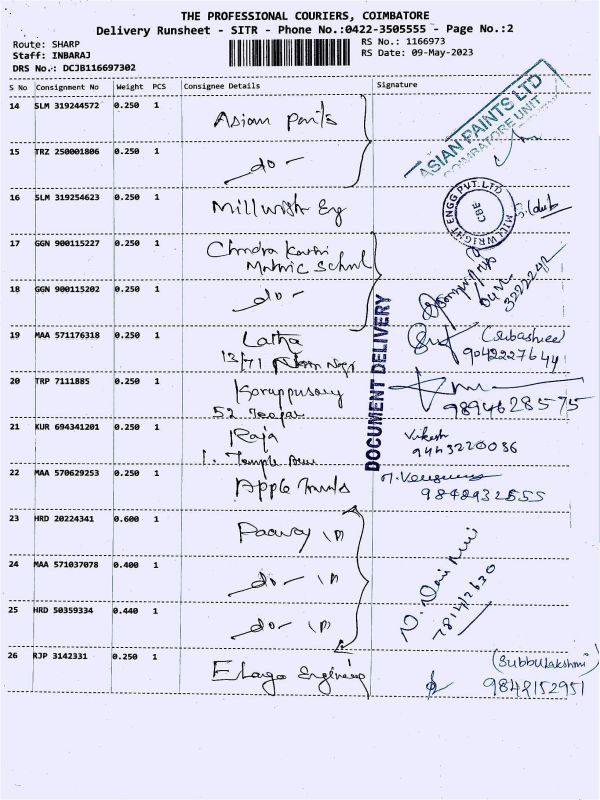 THE PROFESSIONAL COURIERS, COIMBATORE
Delivery Runsheet - SITR - Phone No.:0422-3505555 - Page No.:2
Route: SHARP
Staff: INBARAJ
DRS No.: DCJB116697302
RS No.: 1166973
RS Date: 09-May-2023
S No Consignment No Weight PCS Consignee Details Signature
14 SLM 319244572 0.250 1 Asian paints
ASIAN PAINTS LTD
COIMBATORE UNIT
15 TRZ 250001806 0.250 1 -do-
16 SLM 319254623 0.250 1 Millwright Eg
MILLWRIGHT ENGG PVT. LTD
CBE
17 GGN 900115227 0.250 1 Chndra
Matric School
18 GGN 900115202 0.250 1 -do-
3222242
DOCUMENT DELIVERY
19 MAA 571176318 0.250 1 Latha
13/71
(Subashree)
9042227644
20 TRP 7111885 0.250 1 Karuppusamy
52
9894628575
21 KUR 694341201 0.250 1 Raja
1. Temple
Vikesh
9443220036
22 MAA 570629253 0.250 1 Apple
9842932555
23 HRD 20224341 0.600 1
24 MAA 571037078 0.400 1 -do-
25 HRD 50359334 0.440 1 -do-
781412630
26 RJP 3142331 0.250 1 Elargo Engineering
(Subbulakshmi)
9842152951